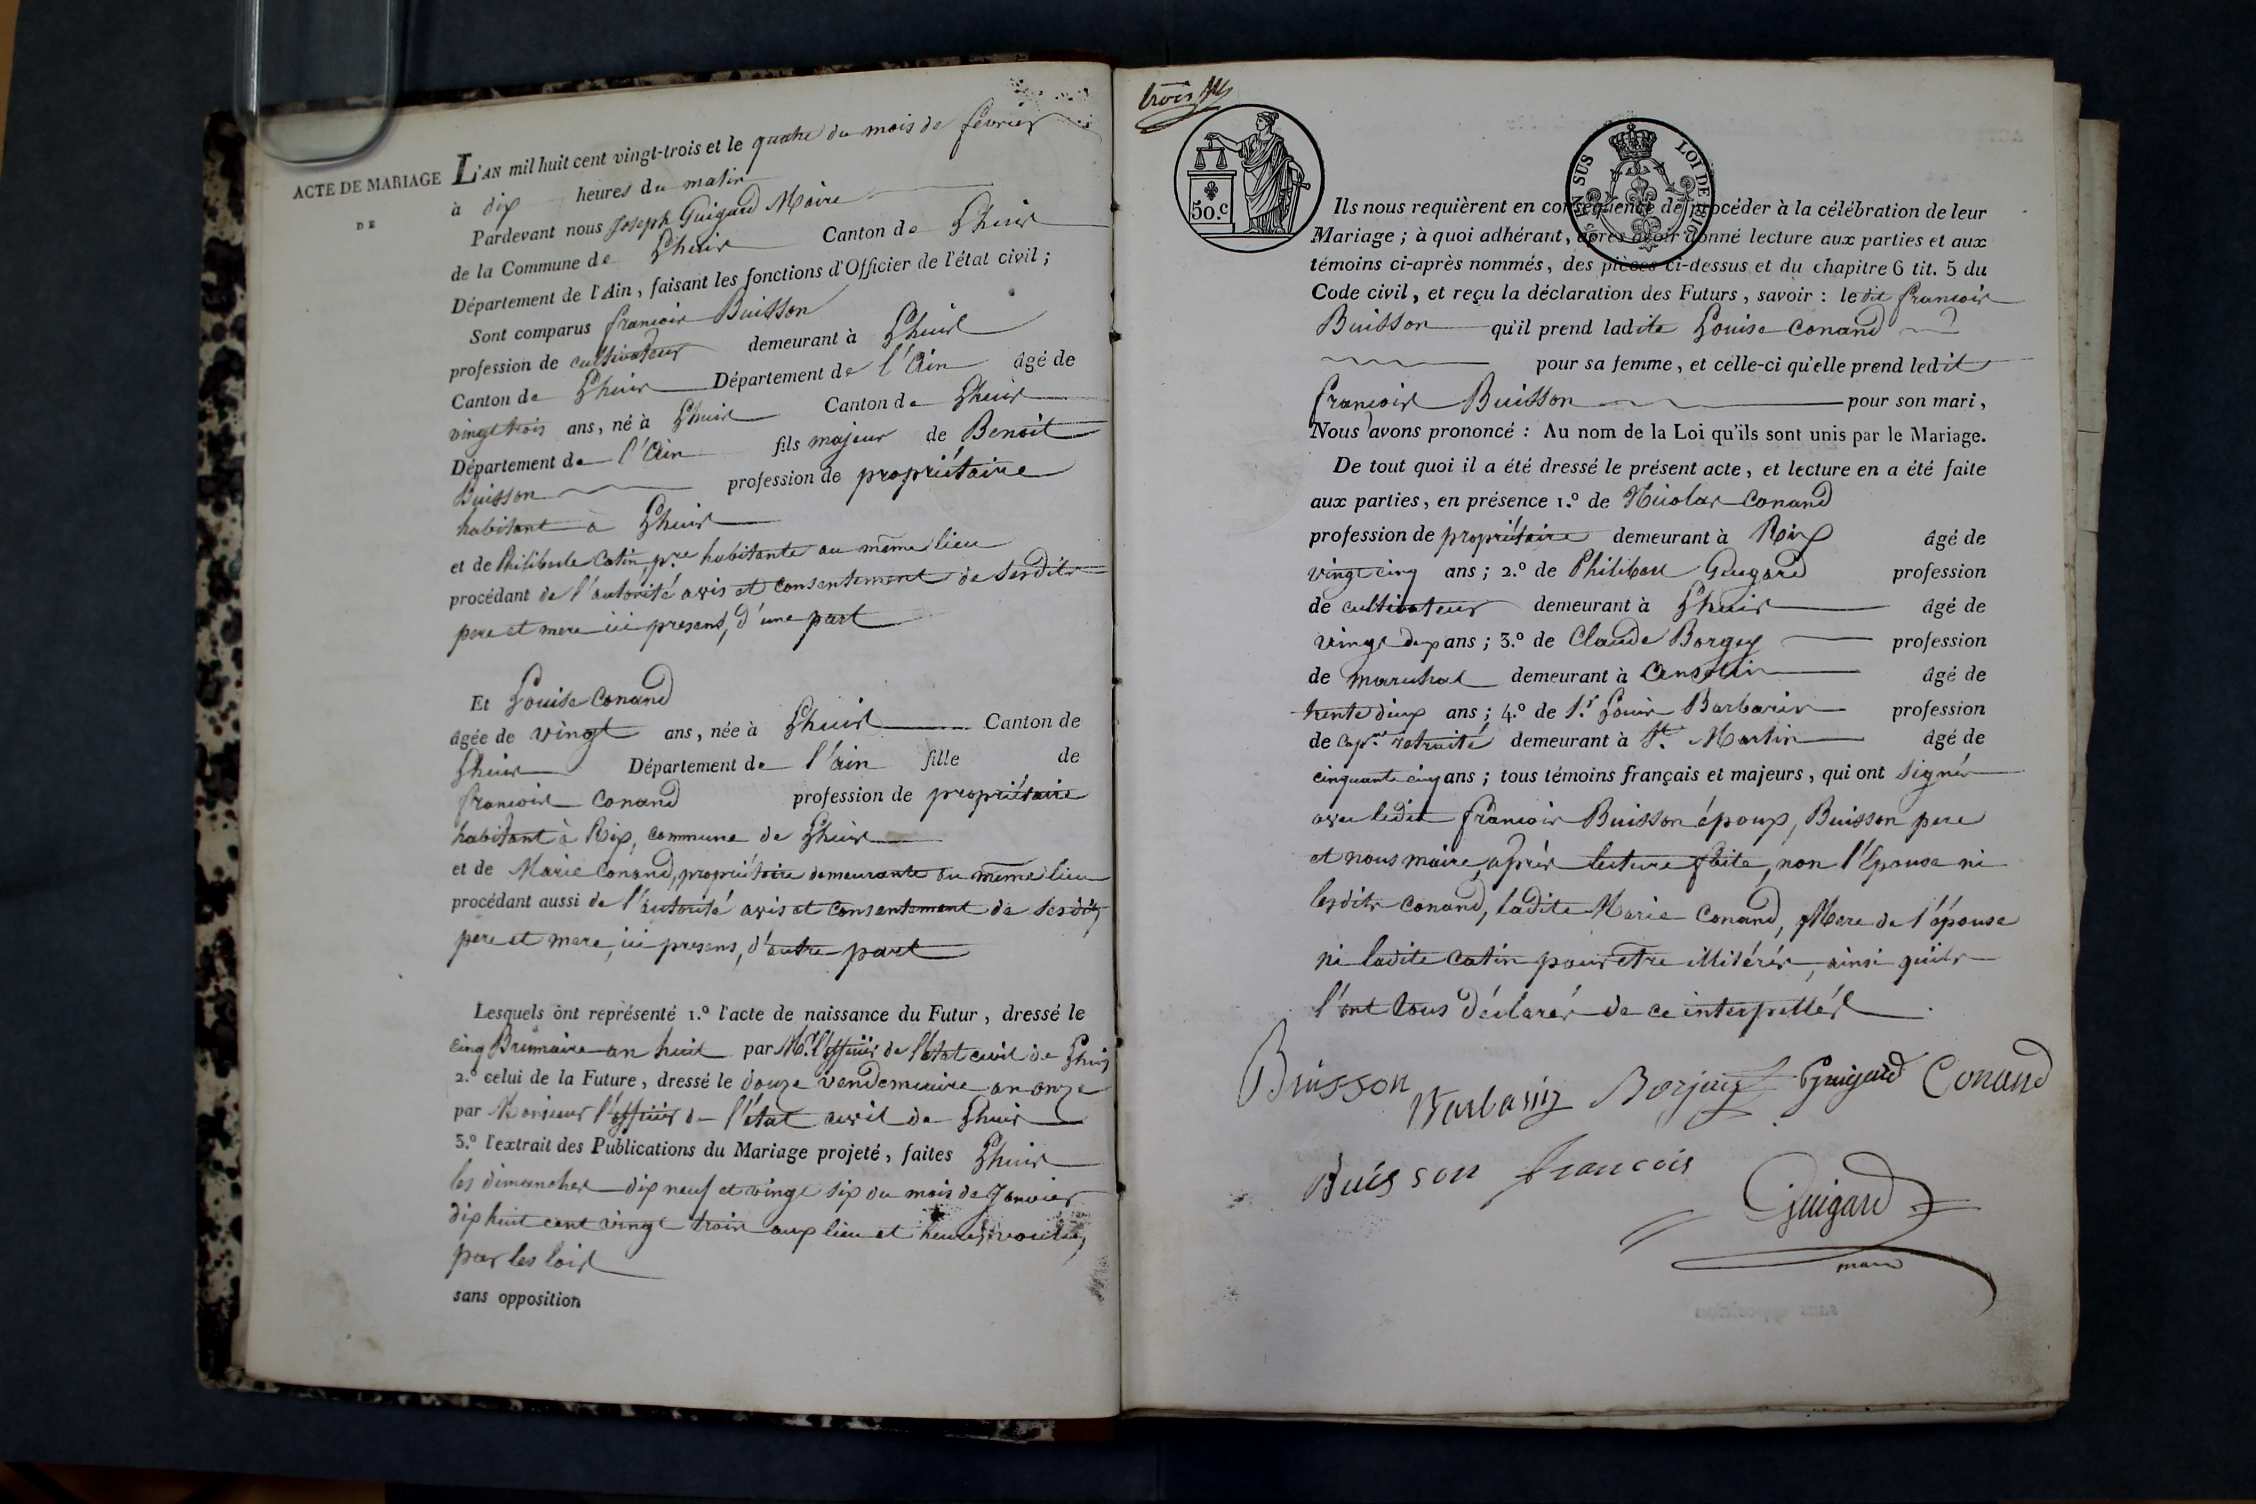 ACTE DE MARIAGE
DE
L'AN mil huit cent vingt-trois et le quatre du mois de février
à dix heures du matin
Pardevant nous Joseph Guigard Maire
de la Commune de Lhuis Canton de Lhuis
Département de l'Ain, faisant les fonctions d'Officier de l'état civil;
Sont comparus francois Buisson
profession de cultivateur demeurant à Lhuis
Canton de Lhuis Département de l'Ain âgé de
vingt trois ans, né à Lhuis Canton de Lhuis
Département de l'Ain fils majeur de Benoit
Buisson profession de propriétaire
habitant à Lhuis
et de Philiberte Catin pre habitante au même lieu
procédant de l'autorité avis et consentement de sesdits
pere et mere ici presens, d'une part
Et Louise Conand
âgée de vingt ans, née à Lhuis Canton de
Lhuis Département de l'ain fille de
francois Conand profession de propriétaire
habitant à Rix, commune de Lhuis
et de Marie Conand, propriétaire demeurante au même lieu
procédant aussi de l'autorité avis et consentement de sesdits
pere et mere, ici presens, d'autre part
Lesquels ont représenté 1.º l'acte de naissance du Futur, dressé le
cinq Brumaire an huit par Mr. l'officier de l'état civil de Lhuis
2.º celui de la Future, dressé le douze vendemiaire an onze
par Monsieur l'officier de l'état civil de Lhuis
3.º l'extrait des Publications du Mariage projeté, faites Lhuis
les dimanches dix neuf et vingt six du mois de Janvier
dix huit cent vingt trois aux lieu et heures voulues
par les lois
sans opposition
trois
50.c
EN SUS LOI DE 1816
Ils nous requièrent en conséquence de procéder à la célébration de leur
Mariage; à quoi adhérant, après avoir donné lecture aux parties et aux
témoins ci-après nommés, des pièces ci-dessus et du chapitre 6 tit. 5 du
Code civil, et reçu la déclaration des Futurs, savoir: ledit francois
Buisson qu'il prend ladite Louise Conand
pour sa femme, et celle-ci qu'elle prend ledit
francois Buisson pour son mari,
Nous avons prononcé: Au nom de la Loi qu'ils sont unis par le Mariage.
De tout quoi il a été dressé le présent acte, et lecture en a été faite
aux parties, en présence 1.º de Nicolas Conand
profession de propriétaire demeurant à Rix âgé de
vingt cinq ans; 2.º de Philibert Guigard profession
de cultivateur demeurant à Lhuis âgé de
vingt deux ans; 3.º de Claude Borgey profession
de marechal demeurant à âgé de
trente deux ans; 4.º de Sr. Louis Barbarin profession
de capne. retraité demeurant à St. Martin âgé de
cinquante cinq ans; tous témoins français et majeurs, qui ont signés
avec ledit francois Buisson époux, Buisson pere
et nous maire, après lecture faite, non l'épouse ni
lesdits conand, ladite Marie Conand, Mere de l'épouse
ni ladite Catin pour etre illitérés, ainsi qu'ils
l'ont tous déclarés de ce interpellés
Buisson Barbarin Borjay Guigard Conand
Buisson francois
Guigard
maire